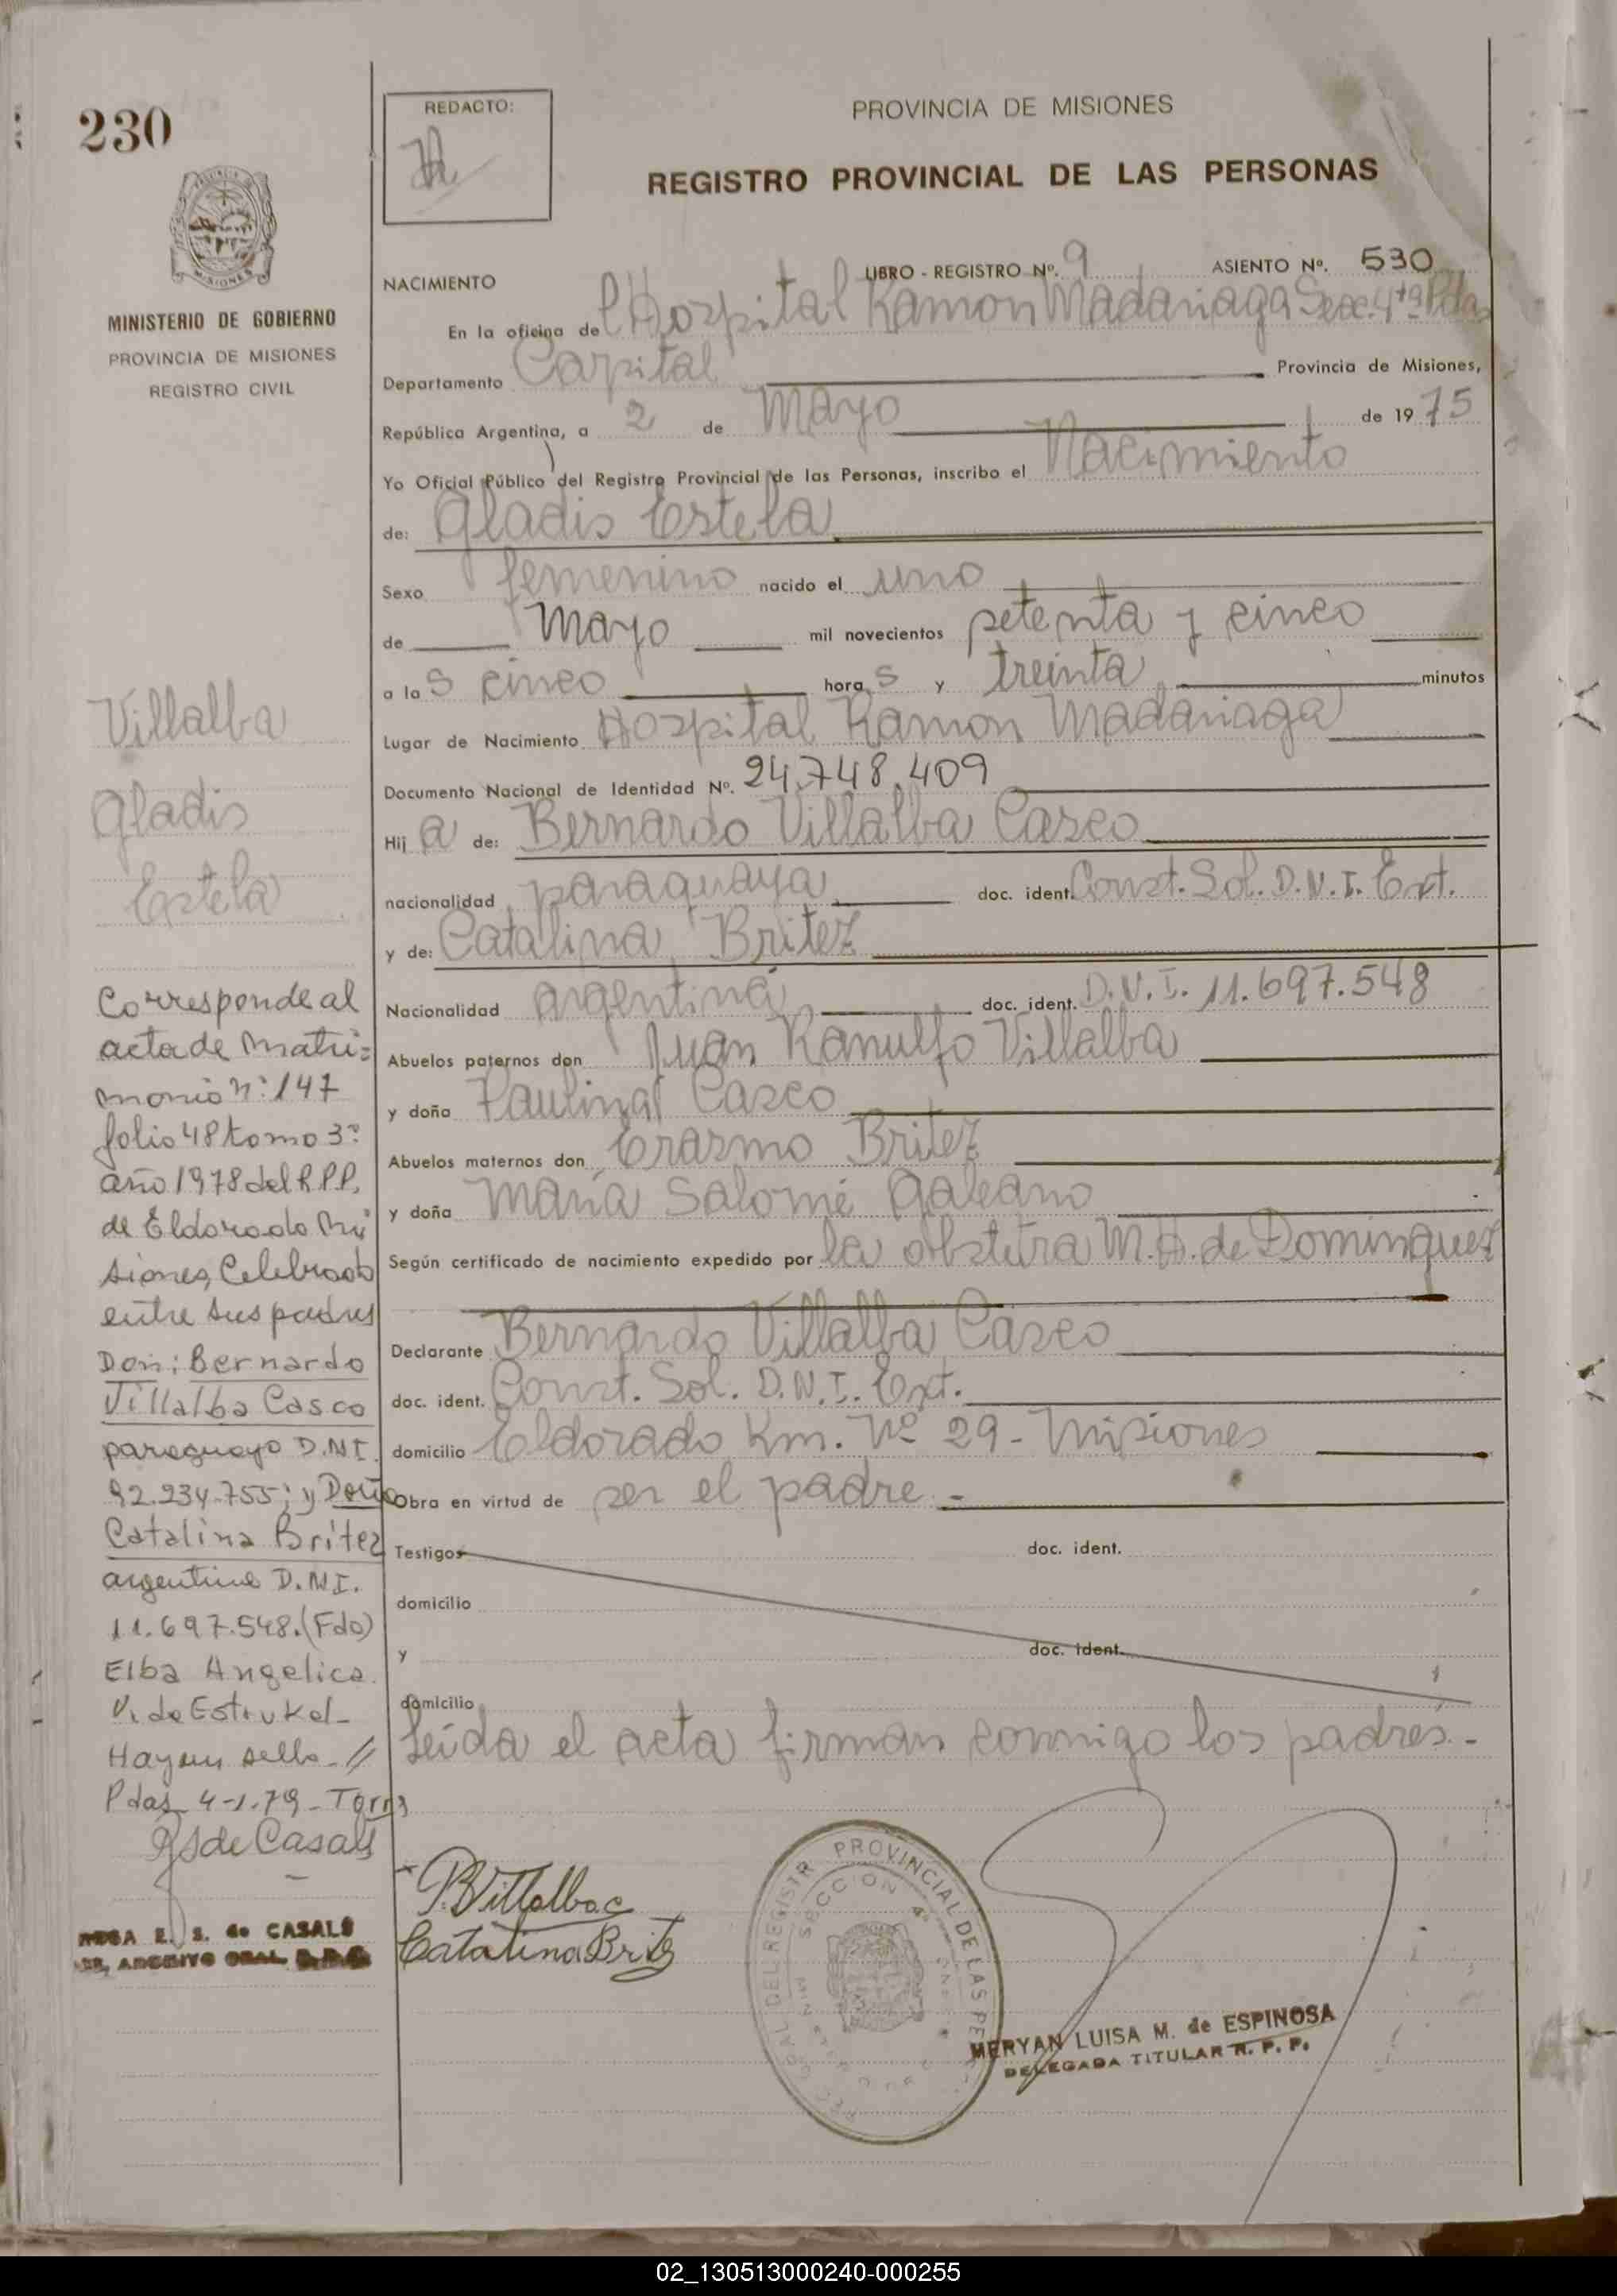 230
REDACTO:
PROVINCIA DE MISIONES
REGISTRO PROVINCIAL DE LAS PERSONAS
MINISTERIO DE GOBIERNO
PROVINCIA DE MISIONES
REGISTRO CIVIL
NACIMIENTO
LIBRO - REGISTRO Nº. 9 ASIENTO Nº. 530
En la oficina del Hospital Ramon Madariaga Secc. 4ta Pdas
Departamento Capital Provincia de Misiones,
República Argentina, a 2 de Mayo de 1975
Yo Oficial Público del Registro Provincial de las Personas, inscribo el Nacimiento
de: Gladis Estela
Sexo femenino nacido el uno
de Mayo mil novecientos setenta y cinco
a las cinco horas y treinta minutos
Lugar de Nacimiento Hospital Ramón Madariaga
Documento Nacional de Identidad Nº. 24.748.409
Hija de: Bernardo Villalba Casco
nacionalidad paraguaya doc. ident. Const. Sol. D.N.I. Ext.
y de: Catalina Britez
Nacionalidad argentina doc. ident. D.N.I. 11.697.548
Abuelos paternos don Juan Ranulfo Villalba
y doña Paulina Casco
Abuelos maternos don Erasmo Britez
y doña María Salomé Galeano
Según certificado de nacimiento expedido por la obstetra M.H. de Dominguez
Declarante Bernardo Villalba Casco
doc. ident. Const. Sol. D.N.I. Ext.
domicilio Eldorado Km. Nº 29 - Misiones
Obra en virtud de ser el padre.-
Testigos doc. ident.
domicilio
y doc. ident.
domicilio
Leída el acta firman conmigo los padres.-
Villalba
Gladis
Estela
Corresponde al
acta de Matri=
monio nº 147
folio 48 tomo 3º
año 1978 del R.P.P.
de Eldorado Mi
siones, Celebrado
entre sus padres
Don: Bernardo
Villalba Casco
paraguayo D.N.I.
92.234.755; y Doña
Catalina Britez
argentina D.N.I.
11.697.548. (Fdo)
Elba Angelica
V. de Estrukel-
Hay un sello-//
Pdas 4-1-79-
de Casals
E. S. de CASALS
B Villalba C
Catalina Britez
PROVINCIAL DE LAS
SECCION 4ª
MERYAN LUISA M. de ESPINOSA
DELEGADA TITULAR R. P. P.
02_130513000240-000255